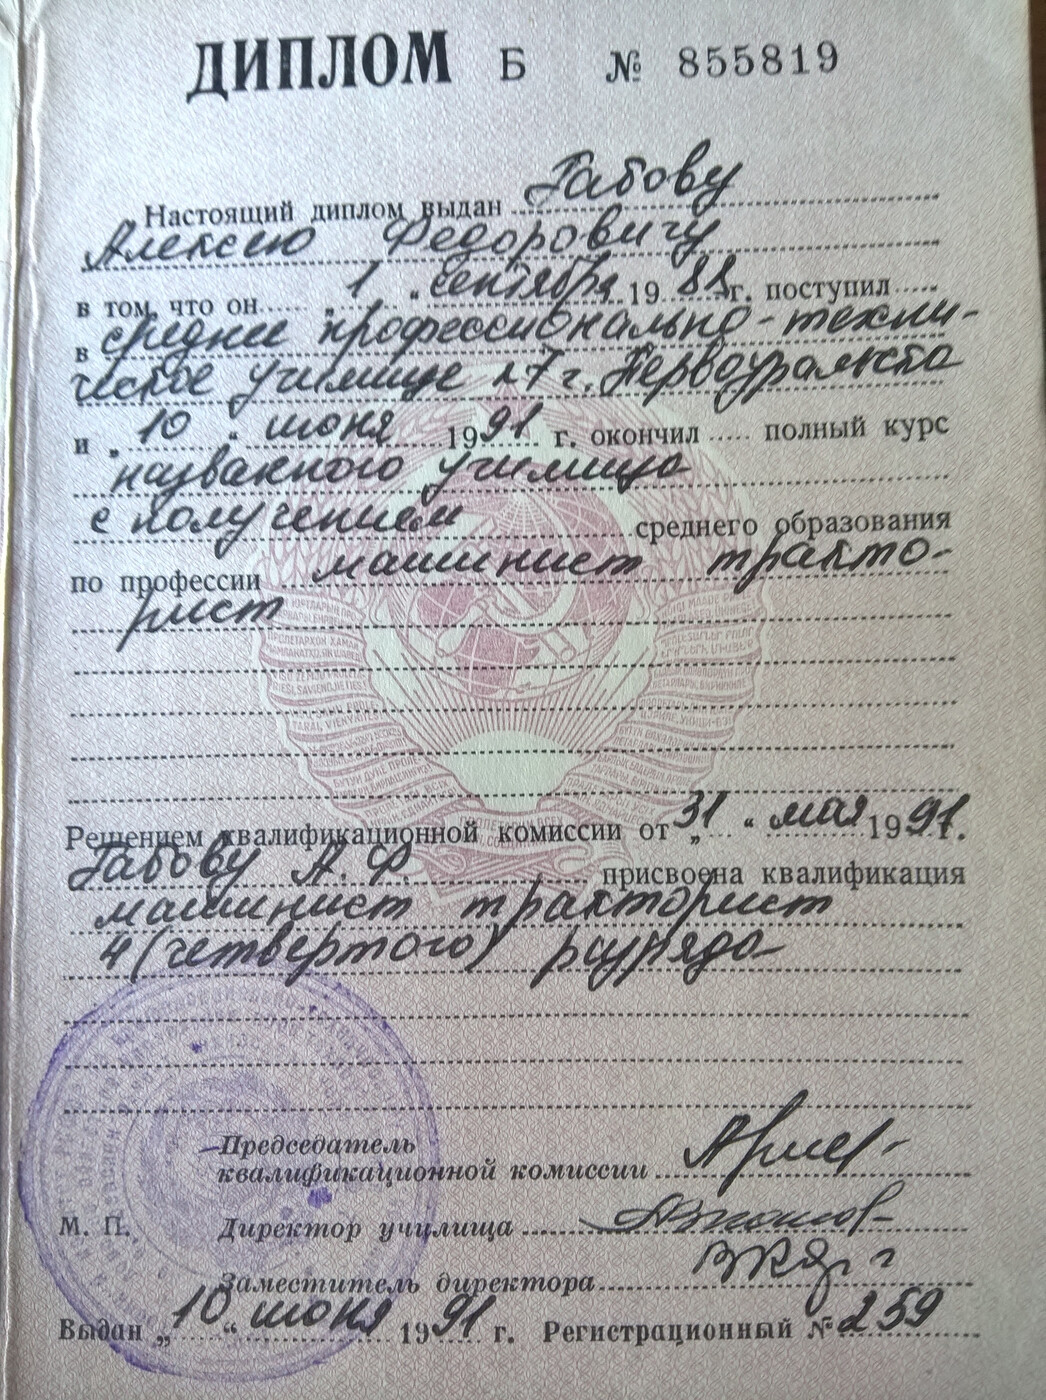 ДИПЛОМ Б № 855819
Настоящий диплом выдан Габову
Алексею Федоровичу
в том, что он „ 1 “ сентября 1988 г. поступил
в среднее профессионально-техни-
ческое училище 17 г. Первоуральска
и „ 10 “ июня 1991 г. окончил полный курс
названного училища
с получением среднего образования
по профессии машинист тракто-
рист
Решением квалификационной комиссии от „ 31 “ мая 1991 г.
Габову А. Ф. присвоена квалификация
машинист тракторист
4 (четвертого) разряда
Председатель
квалификационной комиссии
М. П. Директор училища
Заместитель директора
Выдан „ 10 “ июня 1991 г. Регистрационный № 259